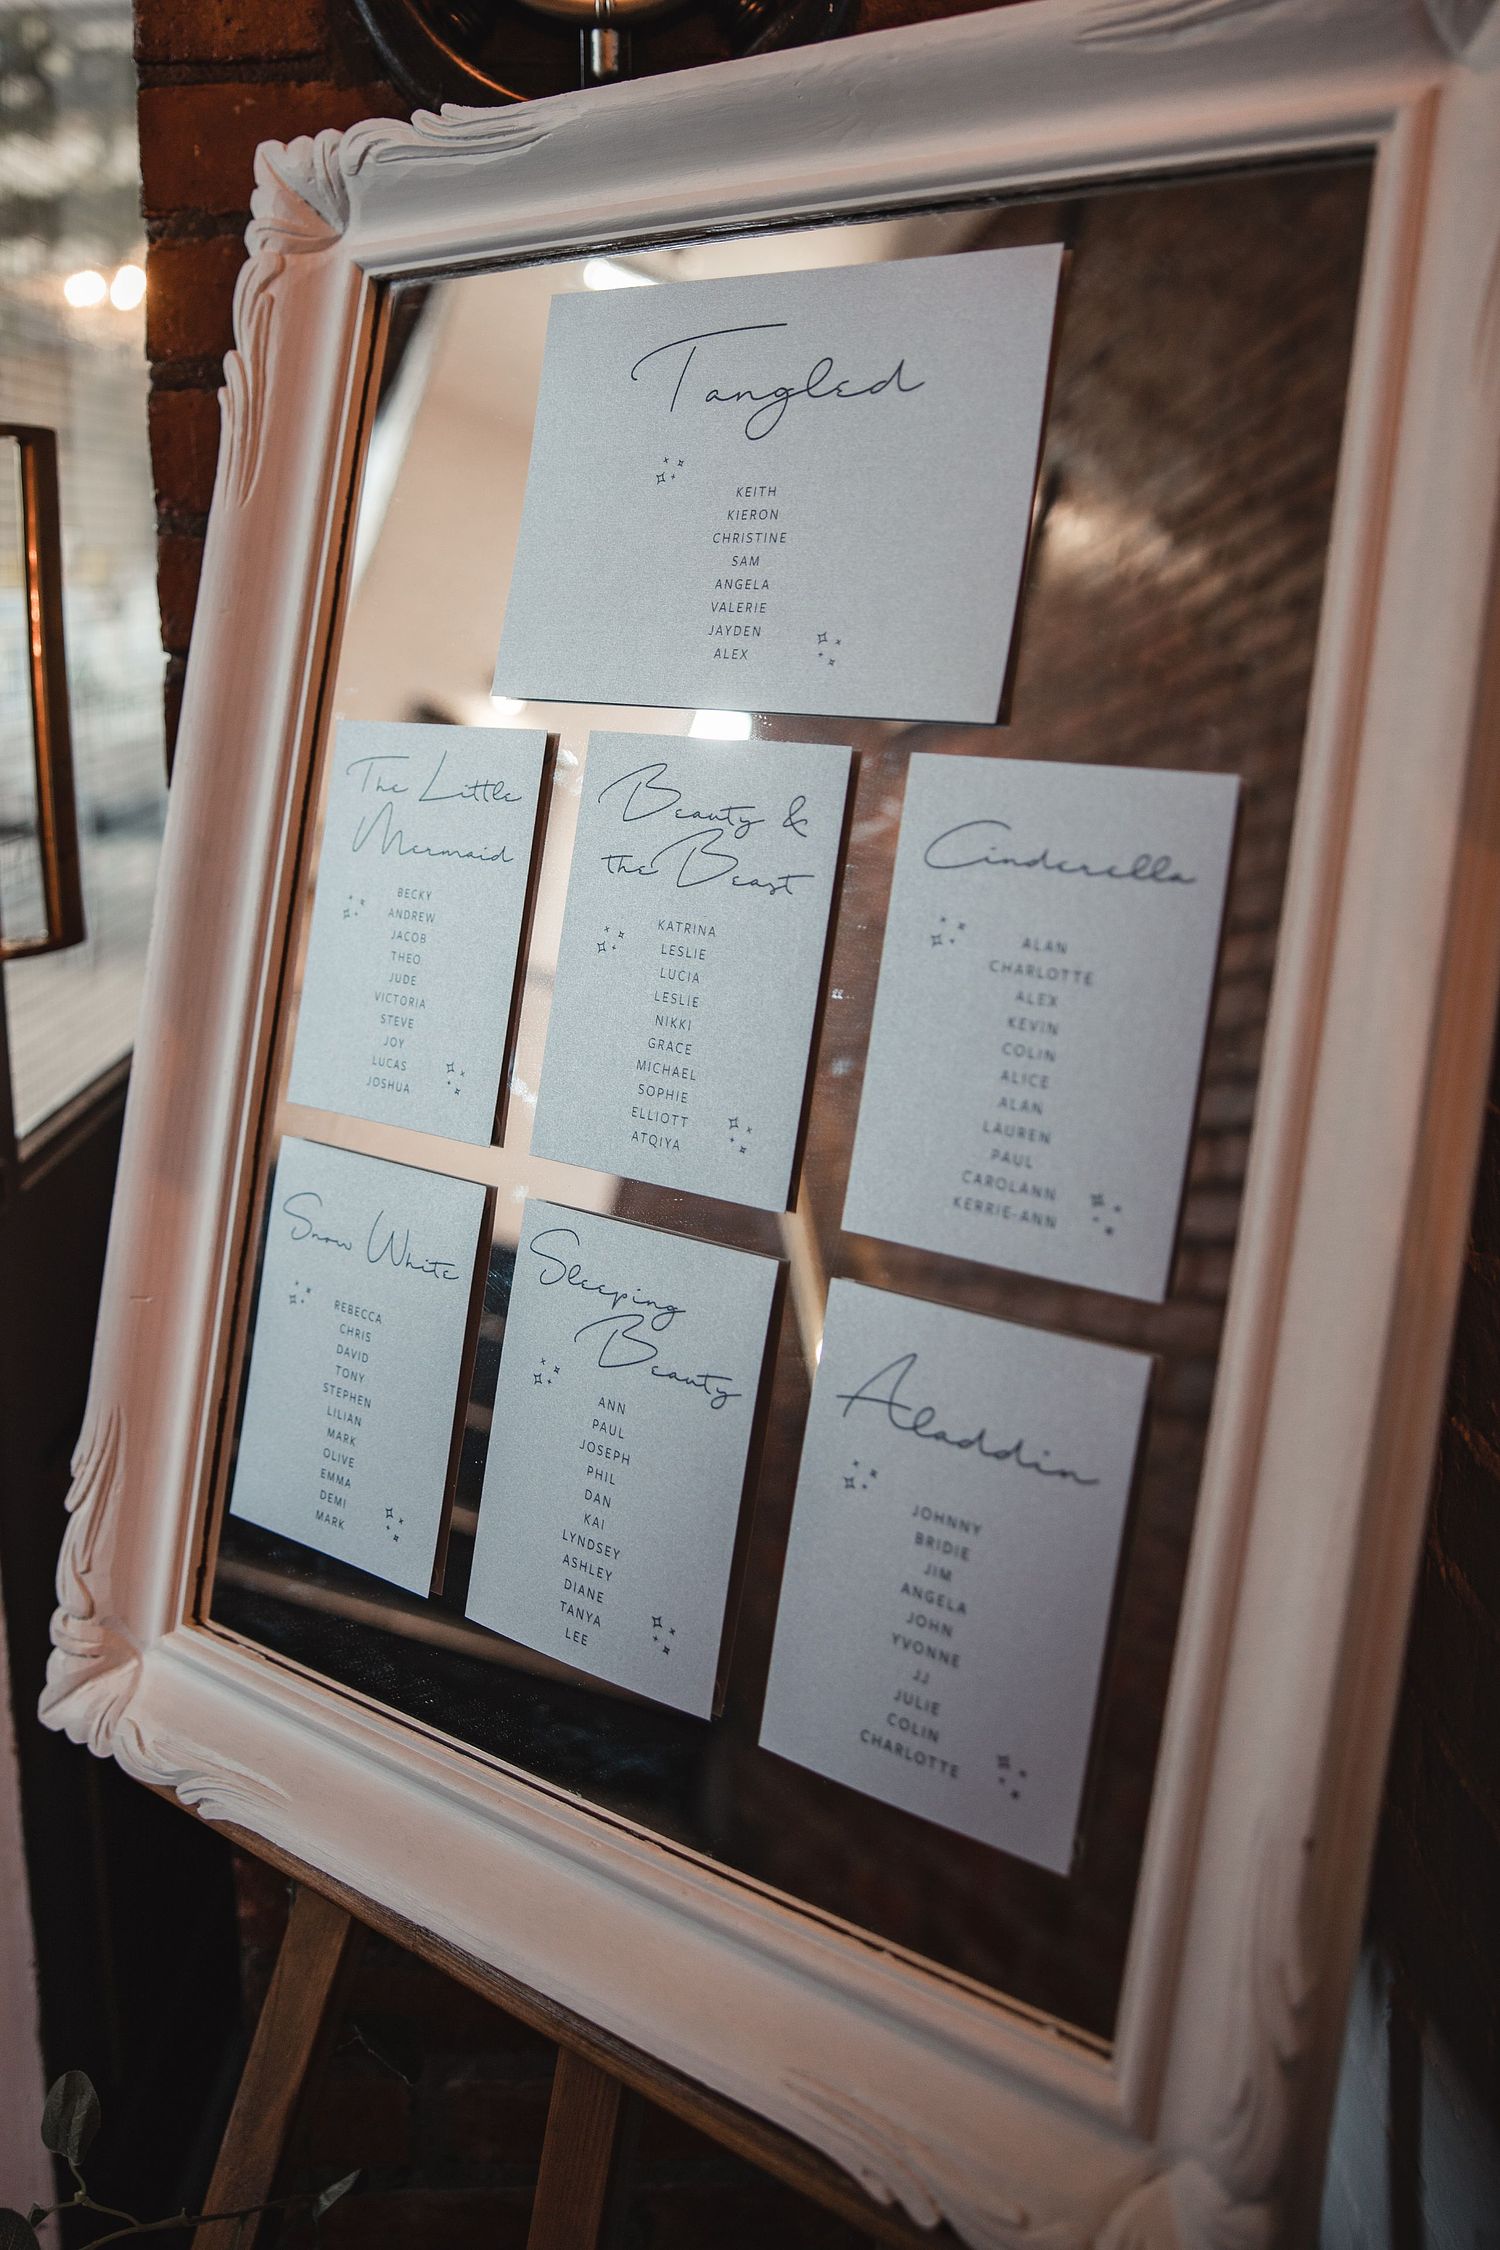 Tangled
KEITH
KIERON
CHRISTINE
SAM
ANGELA
VALERIE
JAYDEN
ALEX
The Little
Mermaid
BECKY
ANDREW
JACOB
THEO
JUDE
VICTORIA
STEVE
JOY
LUCAS
JOSHUA
Beauty &
the Beast
KATRINA
LESLIE
LUCIA
LESLIE
NIKKI
GRACE
MICHAEL
SOPHIE
ELLIOTT
ATQIYA
Cinderella
ALAN
CHARLOTTE
ALEX
KEVIN
COLIN
ALICE
ALAN
LAUREN
PAUL
CAROLANN
KERRIE-ANN
Snow White
REBECCA
CHRIS
DAVID
TONY
STEPHEN
LILIAN
MARK
OLIVE
EMMA
DEMI
MARK
Sleeping
Beauty
ANN
PAUL
JOSEPH
PHIL
DAN
KAI
LYNDSEY
ASHLEY
DIANE
TANYA
LEE
Aladdin
JOHNNY
BRIDIE
JIM
ANGELA
JOHN
YVONNE
JJ
JULIE
COLIN
CHARLOTTE